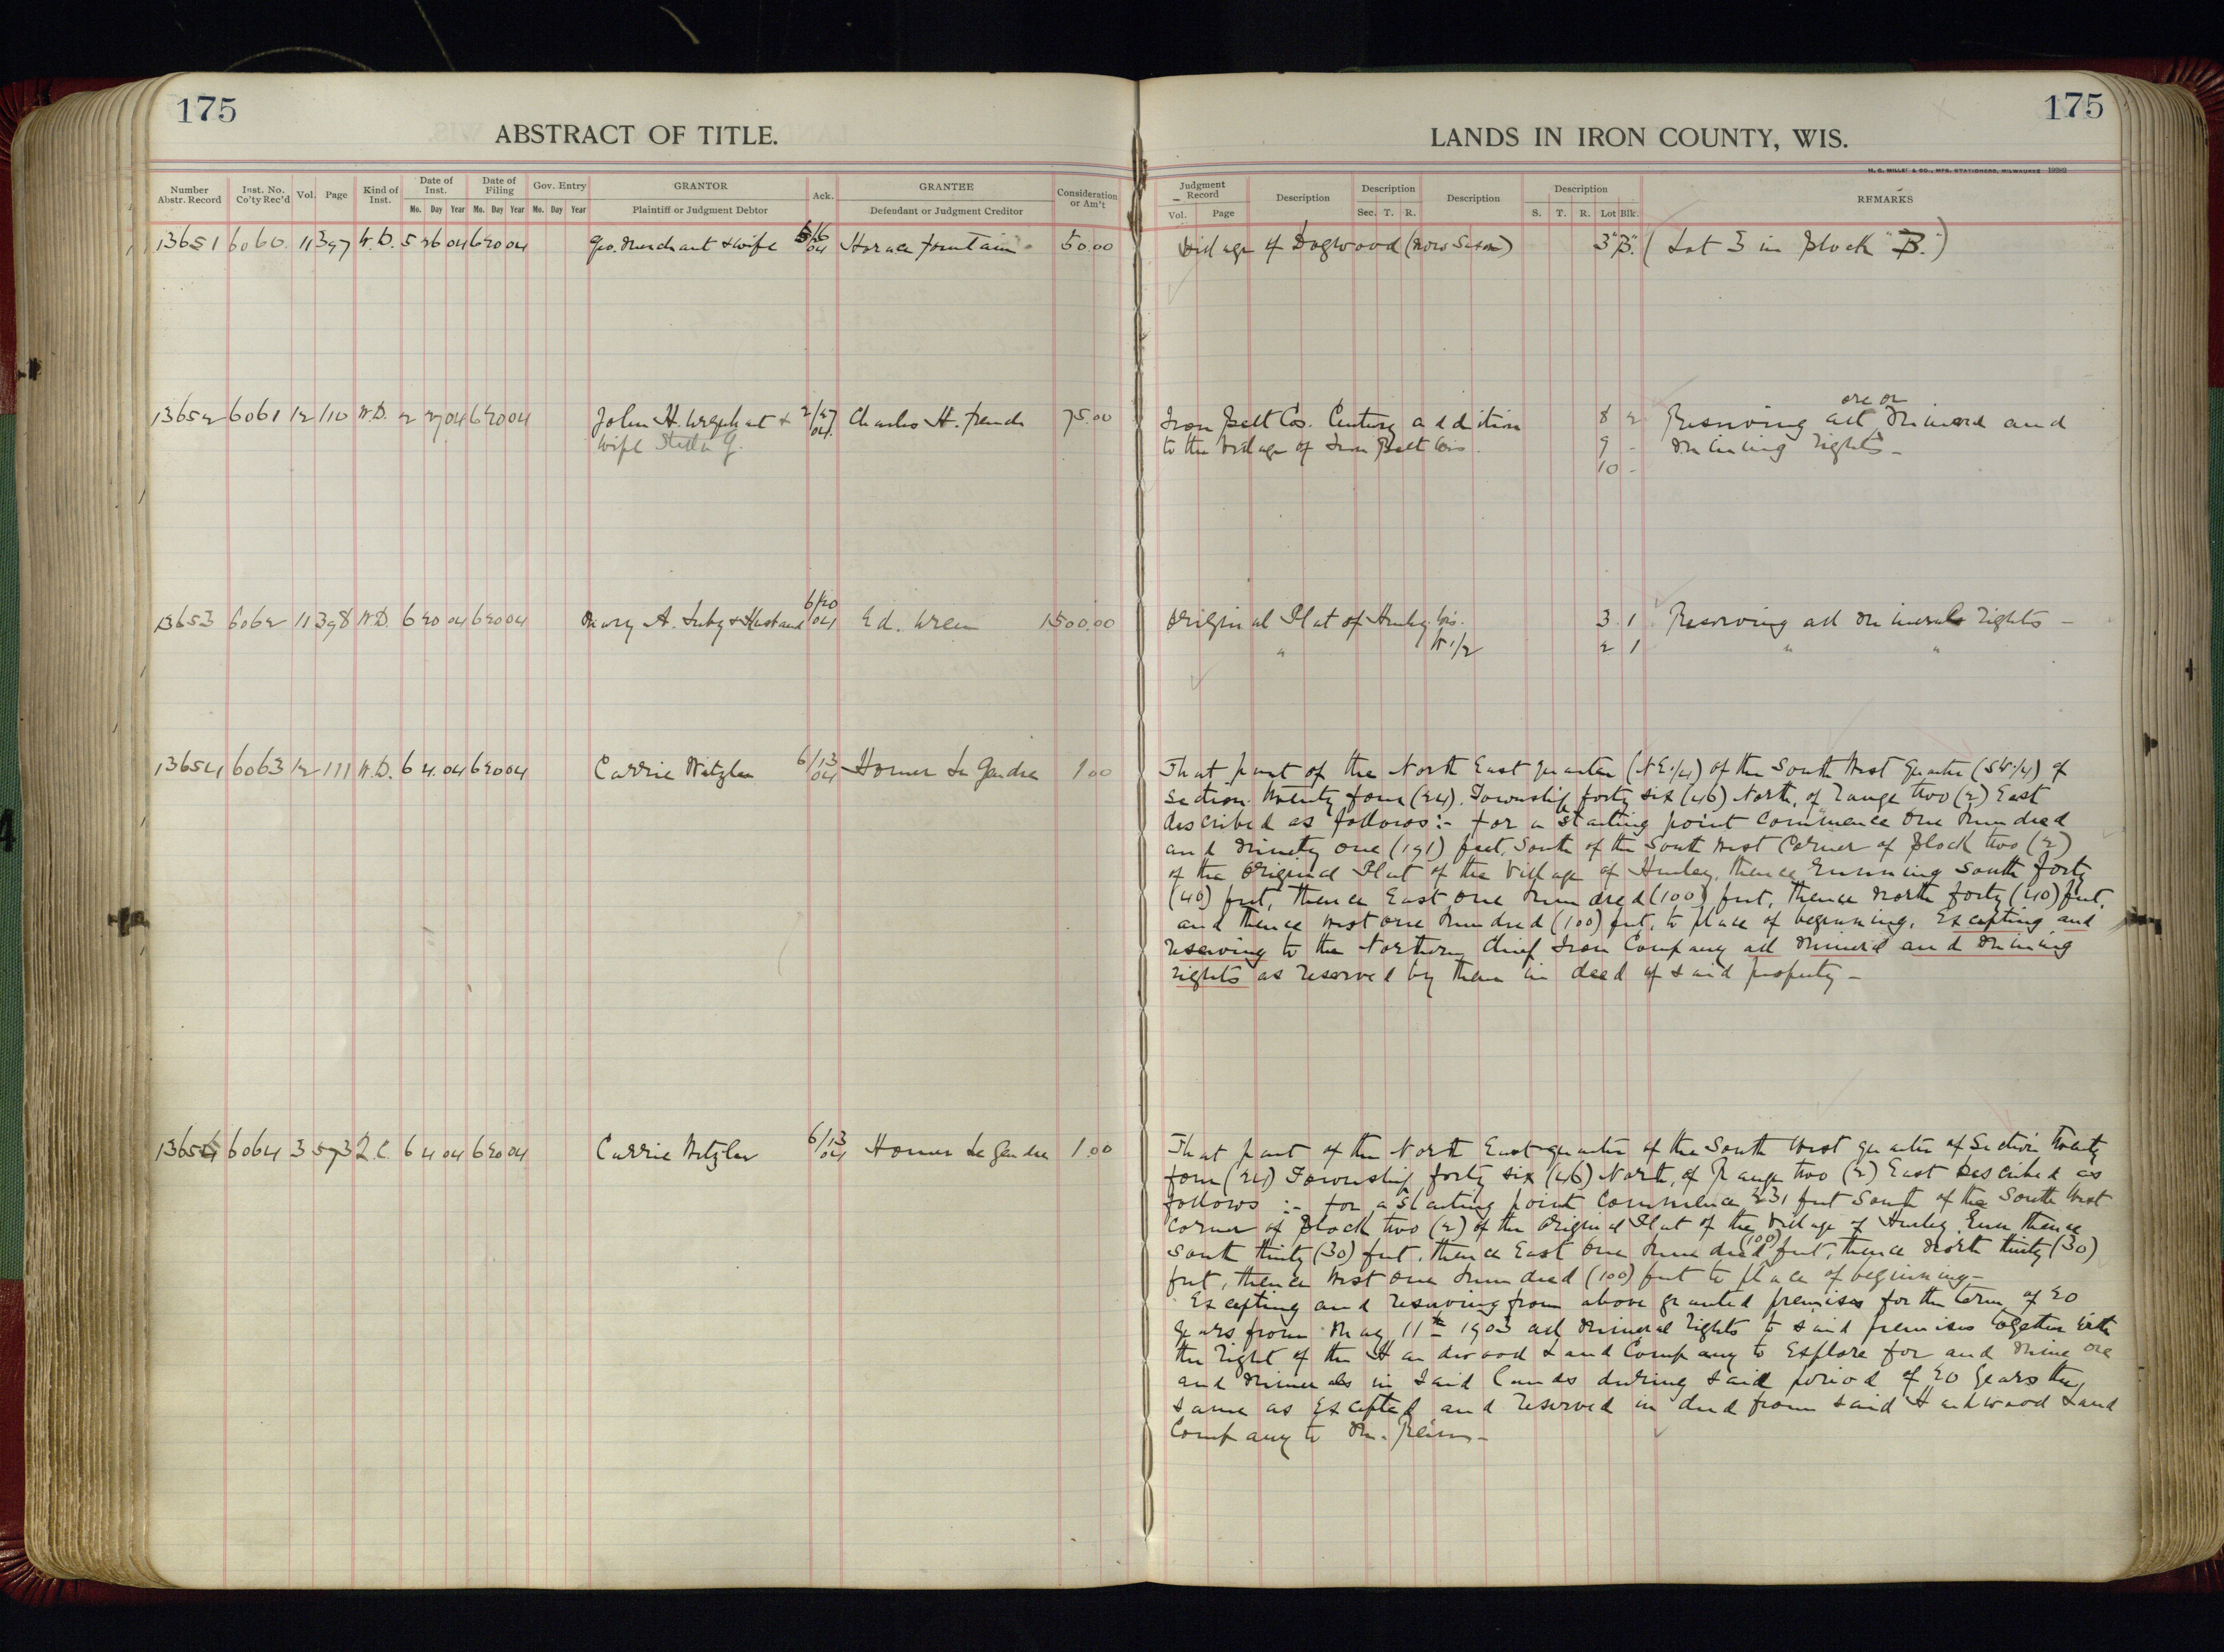 175
ABSTRACT OF TITLE.
Number Abstr. Record Inst. No. Co'ty Rec'd Vol. Page Kind of Inst. Date of Inst. Date of Filing Gov. Entry GRANTOR Ack. GRANTEE Consideration or Am't
Mo. Day Year Mo. Day Year Mo. Day Year Plaintiff or Judgment Debtor Defendant or Judgment Creditor
13651 6060 11 397 W.D. 5 26 04 6 20 04 Geo. Merchant & wife Horace Fountain 50.00
13652 6061 12 110 W.D. 2 27 04 6 20 04 John H. & 2/27 04 Charles H. French 75.00
wife Stella G.
13653 6062 11 398 W.D. 6 20 04 6 20 04 Mary A. & Husband 6/20 04 Ed. Wren 1500.00
13654 6063 12 111 W.D. 6 4 04 6 20 04 Carrie 6/13 04 Homer Le Gendre 1.00
6064 3 573 Q.C. 6 4 04 6 20 04 Carrie 6/13 04 Homer Le Gendre 1.00
175
LANDS IN IRON COUNTY, WIS.
Judgment Record Description Description Description Description REMARKS
Vol. Page Sec. T. R. S. T. R. Lot Blk.
Village of Dogwood (now Saxon) 3 "B." (Lot 3 in Block "B.")
Iron Belt Cos. Century addition 8 2 Reserving all ore or mineral and
to the Village of Iron Belt Wis. 9 - mining rights -
10 -
Original Plat of Hurley Wis. 3 1 Reserving all mineral rights -
" W 1/2 2 1 " "
That part of the North East quarter (NE.1/4) of the South West Quarter (SW.1/4) of
Section twenty four (24), Township forty six (46) North, of range two (2) East
described as follows:- for a starting point commence One Hundred
and Ninety one (191) feet, South of the South West Corner of Block two (2)
of the Original Plat of the Village of Hurley, thence running South forty
(40) feet, thence East one Hundred (100) feet, thence North forty (40) feet,
and thence West one Hundred (100) feet, to place of beginning, Excepting and
reserving to the Northern Chief Iron Company all mineral and mining
rights as reserved by them in deed of said property -
That part of the North East quarter of the South West quarter of Section twenty
four (24) Township forty six (46) North, of Range two (2) East described as
follows :- for a starting point commence 231 feet South of the South West
Corner of Block two (2) of the Original Plat of the Village of Hurley, Run thence
South thirty (30) feet, thence East One Hundred (100) feet, thence North thirty (30)
feet, thence West one Hundred (100) feet to place of beginning -
Excepting and reserving from above granted premises for the term of 20
years from May 11th 1903 all mineral rights to said premises together with
the right of the Hardwood Land Company to Explore for and mine ore
and minerals in said lands during said period of 20 years the
same as Excepted and reserved in deed from said Hardwood Land
Company to M.